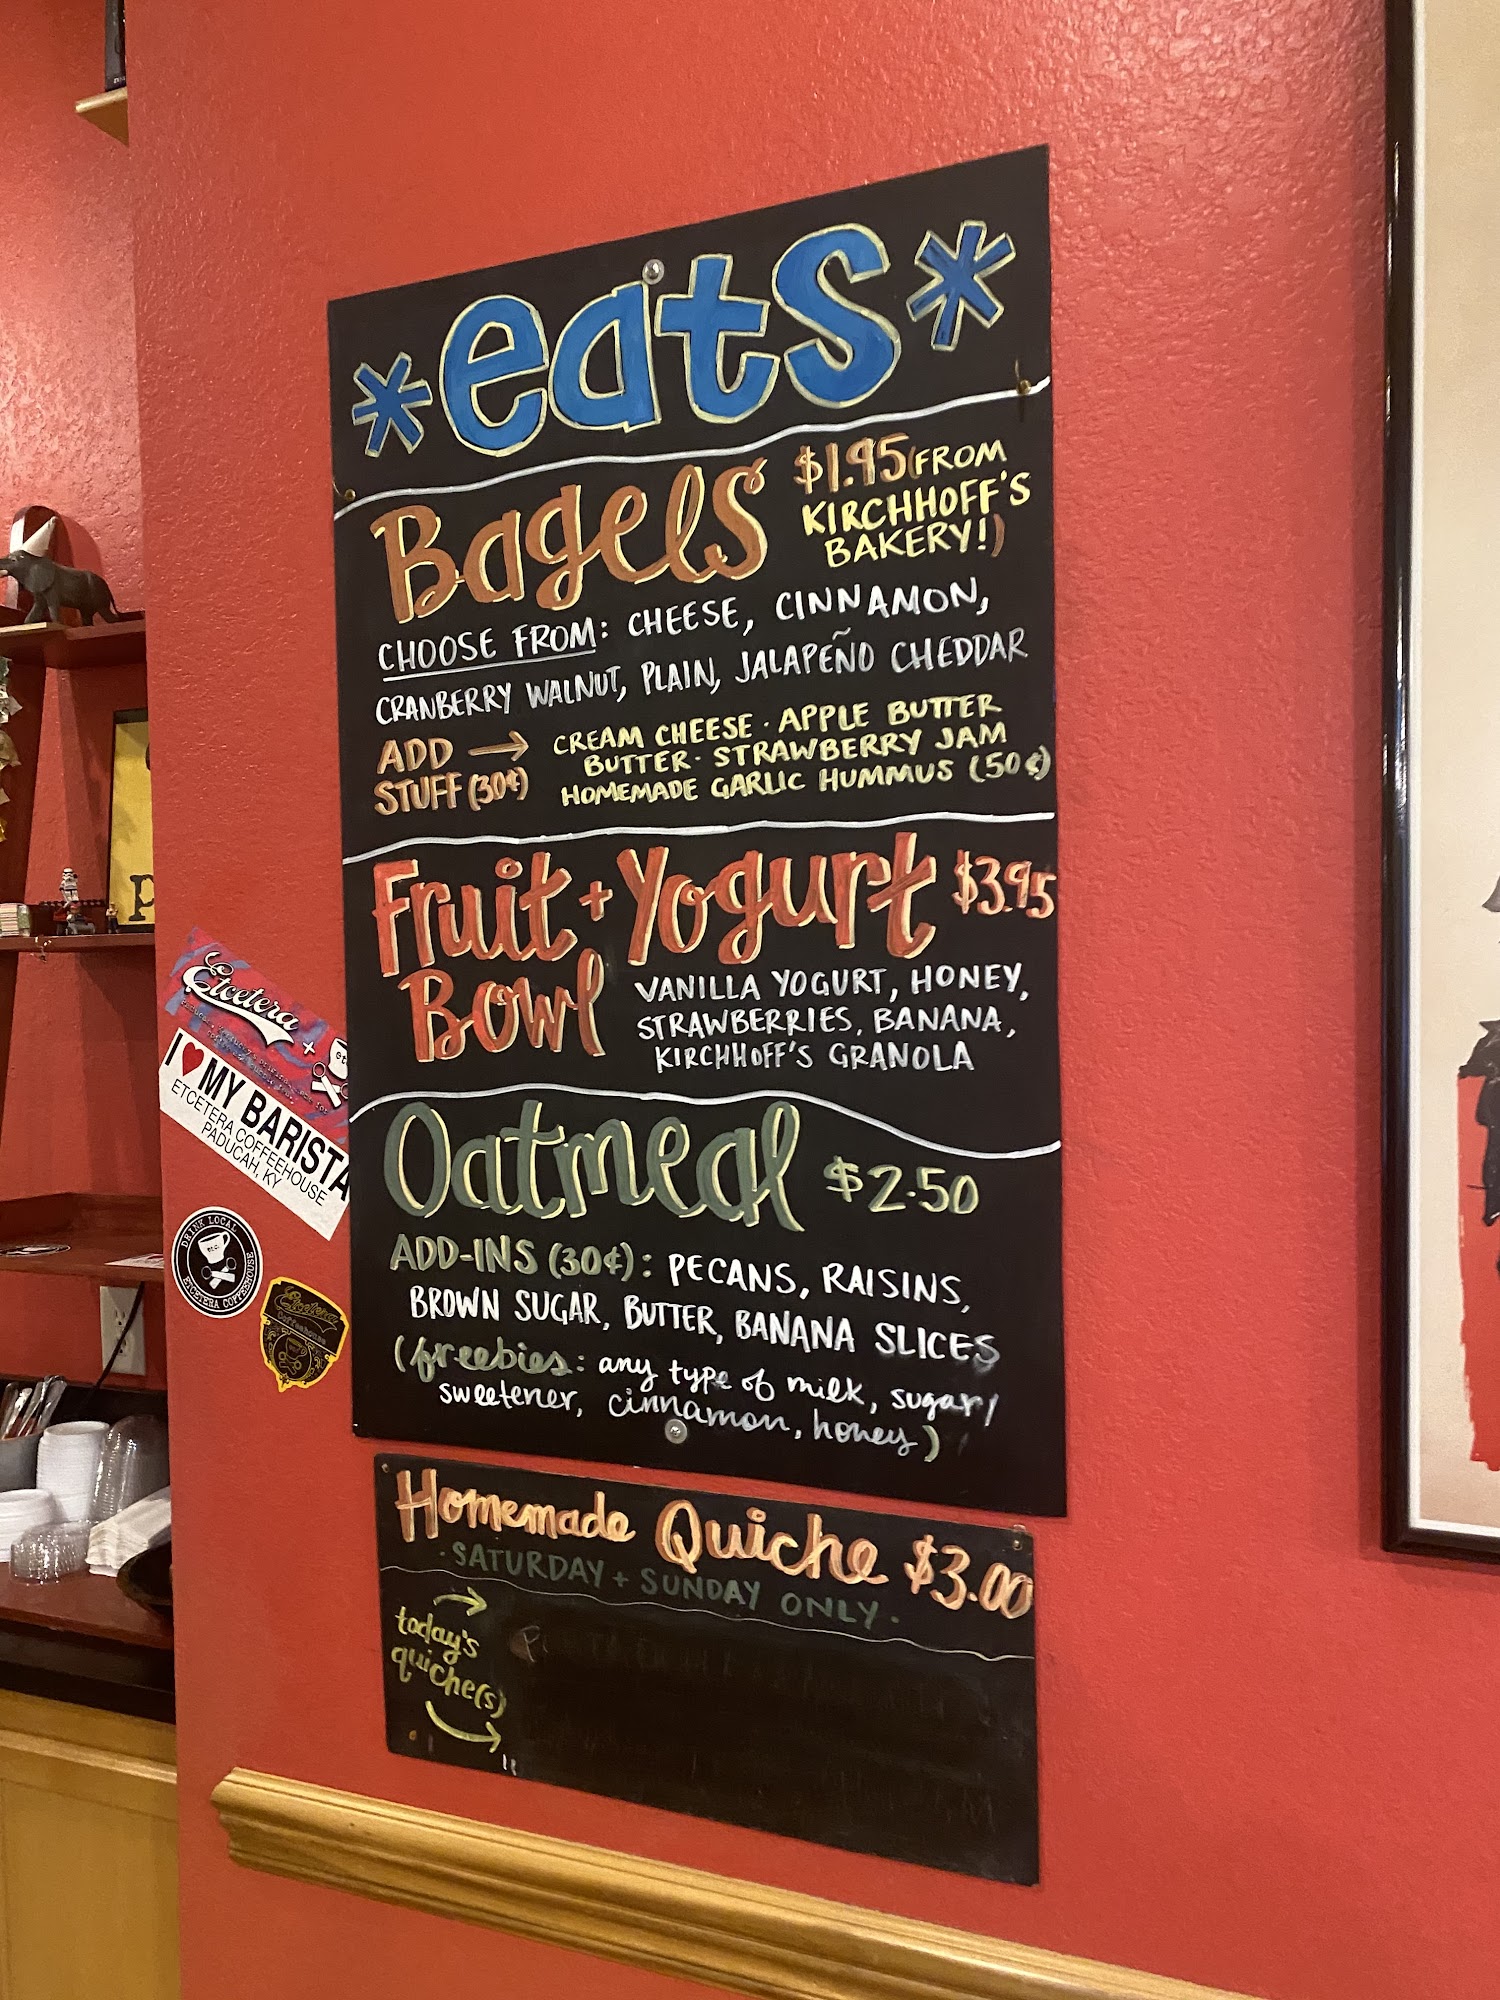 *eats*
Bagels $1.95 (FROM
KIRCHHOFF'S
BAKERY!)
CHOOSE FROM: CHEESE, CINNAMON,
CRANBERRY WALNUT, PLAIN, JALAPEÑO CHEDDAR
ADD → CREAM CHEESE · APPLE BUTTER
BUTTER · STRAWBERRY JAM
STUFF (30¢) HOMEMADE GARLIC HUMMUS (50¢)
Fruit + Yogurt $3.95
Bowl
VANILLA YOGURT, HONEY,
STRAWBERRIES, BANANA,
KIRCHHOFF'S GRANOLA
Oatmeal $2.50
ADD-INS (30¢): PECANS, RAISINS,
BROWN SUGAR, BUTTER, BANANA SLICES
(freebies: any type of milk, sugar/
sweetener, cinnamon, honey)
Homemade Quiche $3.00
·SATURDAY + SUNDAY ONLY·
today's
quiche(s)
Etcetera
I ♥ MY BARISTA
ETCETERA COFFEEHOUSE
PADUCAH, KY
DRINK LOCAL
etc.
ETCETERA COFFEEHOUSE
Etcetera
Coffeehouse
p